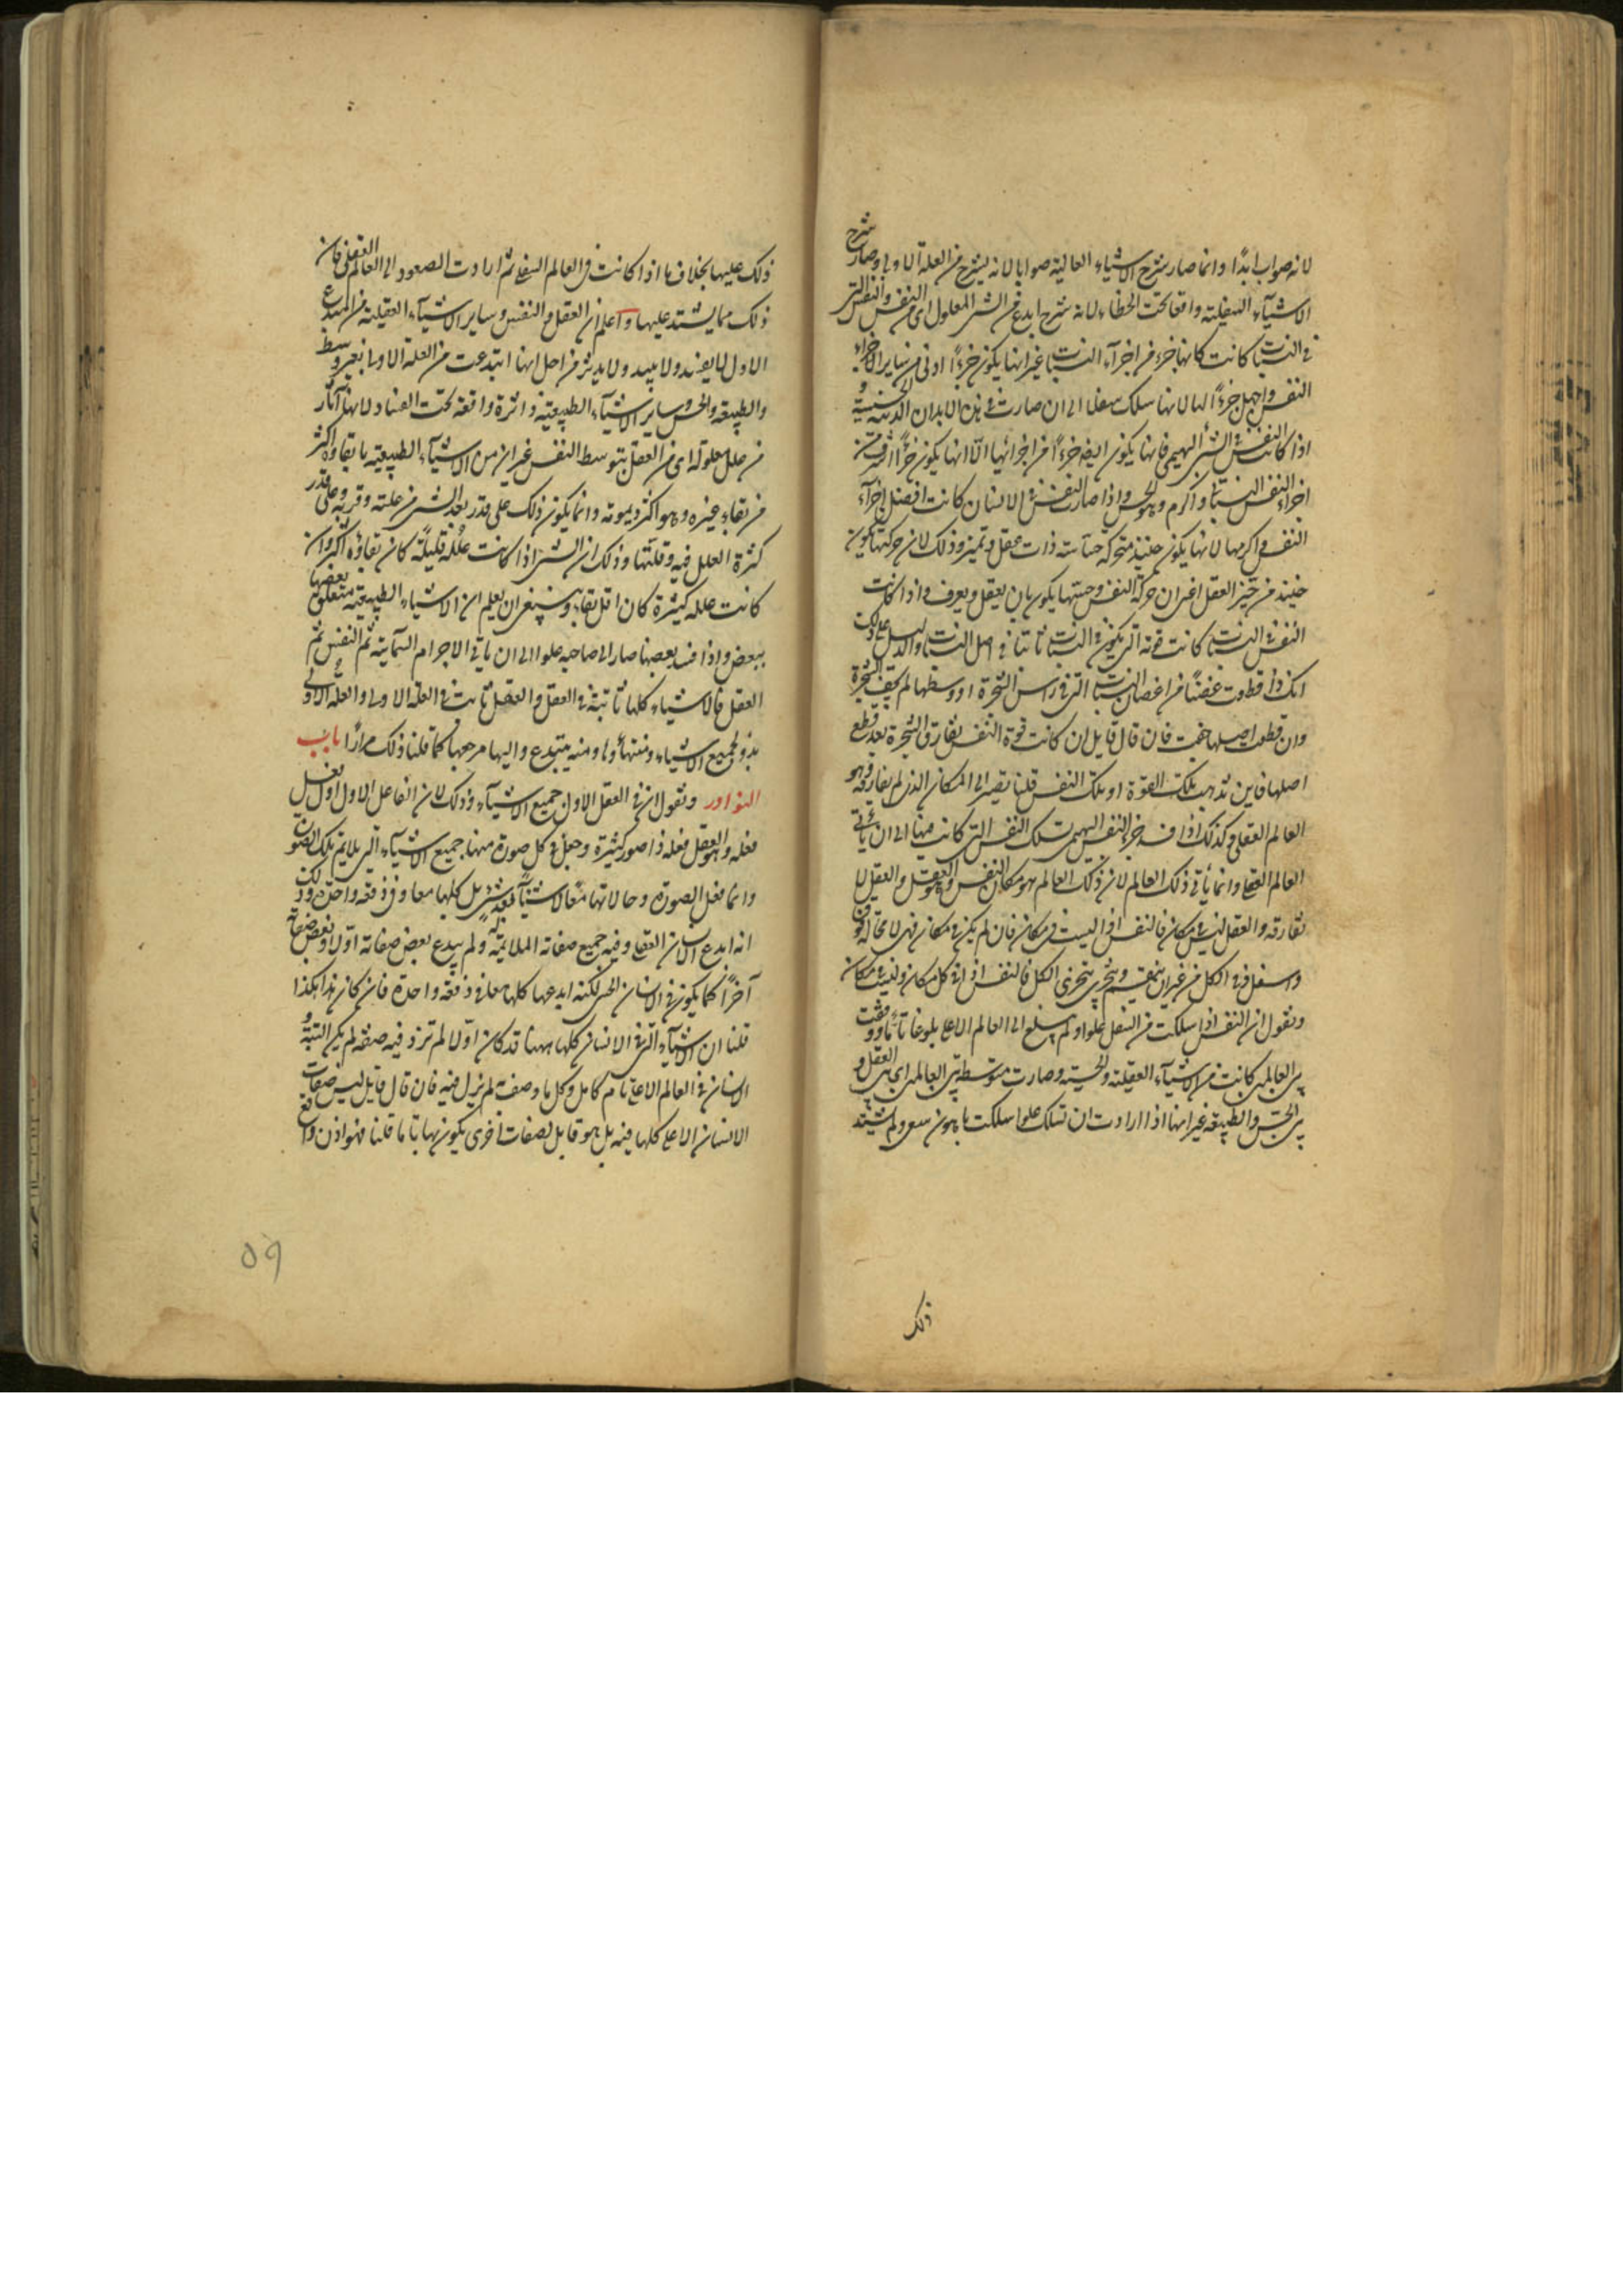 لانه صواب ابدًا وانما صار شرح الاشياء العالية صوابا لانه يشرح من العلة الاولى وصار شرح
الاشياء السفلية واقعا تحت الخطاء لانه شرح ابدع من الشئ المعلول اى من النفس والنفس التى
فى النبات كانت كانها جزء من اجزاء النبات غير انها يكون جزءًا ادنى من ساير الاجزاء
النفس واجهل جزءًا لها لانها سلك سفلا الى ان صارت فى هذه الابدان الدنية الخسيسة و
اذا كانت النفس فى الشئ البهيمى فانها يكون ايضه جزءًا من اجزائها الّا انها يكون جزءًا اشرف من
اجزاء النفس النباتى واكرم وهو الحس واذا صارت النفس فى الانسان كانت افضل اجزاء
النفس واكرمها لانها يكون حينيذ متحركة حساسة ذات عقل وتميز وذلك لان حركتها يكون
حينيذ من حيّز العقل اعنى ان حركة النفس وحسّها يكون بان يعقل ويعرف واذا كانت
النفس فى النبات كانت قوته التى يكون فى النبات ثابتا فى اصل النبات والدليل على ذلك
انك اذا قطعت غصنًا من اغصان النبات التى فى راس الشجرة او وسطها لم يجف الشجرة
وان قطعت اصلها جفت فان قال قايل ان كانت قوة النفس يفارق الشجرة بعد قطع
اصلها فاين تذهب تلك القوة او تلك النفس قلنا يصير الى المكان الذى لم يفارقه وهو
العالم العقلى وكذلك اذا فسد جزء النفس البهيمى تسلك النفس التى كانت فيها الى ان ياتى
العالم العقلى وانما ياتى ذلك العالم لان ذلك العالم هو مكان النفس وهو العقل والعقل لا
تفارقه والعقل ليس فى مكان فالنفس اذا ليست فى مكان فان لم يكن فى مكان فهى لا محالة فوق
واسفل وفى الكل من غير ان ينقسم ويتجزى بتجزى الكل فالنفس اذا فى كل مكان وليس فى مكان
ونقول ان النفس اذا سلكت من السفل علوا ولم يبلغ الى العالم الاعلى بلوغا تامًا ووقفت
بين العالمين كانت من الاشياء العقلية والحسية وصارت متوسطة بين العالمين اى بين العقل و
بين الحس والطبيعة غير انها اذا ارادت ان تسلك علوا سلكت باهون سعى ولم يشتد
ذلك
ذلك عليها بخلاف ما اذا كانت فى العالم السفلى ثم ارادت الصعود الى العالم العقلى فان
ذلك مما يشتد عليها واعلم ان العقل والنفس وساير الاشياء العقلية من المبدع
الاول لا يفسد ولا يبيد ولا يدثر من اجل انها ابتدعت من العلة الاولى بغير وسط
والطبيعة والحس وساير الاشياء الطبيعية داثرة واقعة تحت الفساد لانها آثار
من علل معلولة اى من العقل بتوسط النفس غير ان من الاشياء الطبيعية ما بقاؤه اكثر
من بقاء غيره وهو اكثر ديمومة وانما يكون ذلك على قدر بعد الشئ من علته وقربه وعلى قدر
كثرة العلل فيه وقلتها وذلك ان الشئ اذا كانت علله قليلة كان بقاؤه اكثر وان
كانت علله كثيرة كان اقل بقاء وينبغى ان يعلم ان الاشياء الطبيعية متعلق بعضها
ببعض واذا فسد بعضها صار الى صاحبه علوا الى ان ياتى الاجرام السمايية ثم النفس ثم
العقل فالاشياء كلها ثابتة فى العقل والعقل ثابت فى العلة الاولى والعلة الاولى
بدو لجميع الاشياء ومنتهاها ومنه يبتدع واليها مرجعها كما قلنا ذلك مرارًا باب
النوادر ونقول ان فى العقل الاول جميع الاشياء وذلك لان الفاعل الاول اول فعل
فعله وهو العقل فعله ذا صور كثيرة وجعل فى كل صورة منها جميع الاشياء التى يلايم تلك الصورة
وانما فعل الصورة وحالاتها معًا لا شيئًا بعد شئ بل كلها معا وفى دفعة واحدة وذلك
انه ابدع الانسان العقلى وفيه جميع صفاته الملايمة له ولم يبدع بعض صفاته اوّلا وبعض صفاته
آخرًا كما يكون فى الانسان الحسى لكنه ابدعها كلها معا فى دفعة واحدة فان كان هذا هكذا
قلنا ان الاشياء التى فى الانسان كلها ههنا قد كان اوّلا لم تزد فيه صفة لم يكن البتة و
الانسان فى العالم الاعلى تام كامل وكل ما وصفت لم يزل فيه فان قال قايل ليس صفات
الانسان الاعلى كلها فيه بل هو قابل لصفات اخرى يكون بها تاما قلنا فهو اذن واقع
59